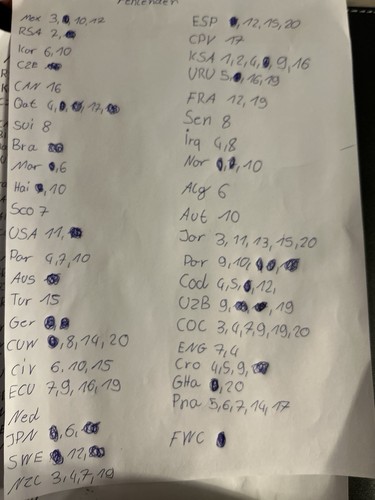 Fehlenden
Mex 3, 10, 12
RSA 2,
Kor 6, 10
CZE
CAN 16
Qat 4, 12,
Sui 8
Bra
Mar , 6
Hai , 10
Sco 7
USA 11,
Par 4, 7, 10
Aus
Tur 15
Ger
CUW , 8, 14, 20
Civ 6, 10, 15
ECU 7, 9, 16, 19
Ned
JPN , 6,
SWE , 12,
NZL 3, 4, 7, 18
ESP , 12, 15, 20
CPV 17
KSA 1, 2, 4, , 9, 16
URU 5, , 16, 19
FRA 12, 19
Sen 8
Irq 4, 8
Nor , , 10
Alg 6
Aut 10
Jor 3, 11, 13, 15, 20
Por 9, 10,
Cod 4, 5, , 12,
UZB 9, , 19
COC 3, 4, 7, 9, 19, 20
ENG 7, 4
Cro 4, 5, 9,
GHa , 20
Pna 5, 6, 7, 14, 17
FWC